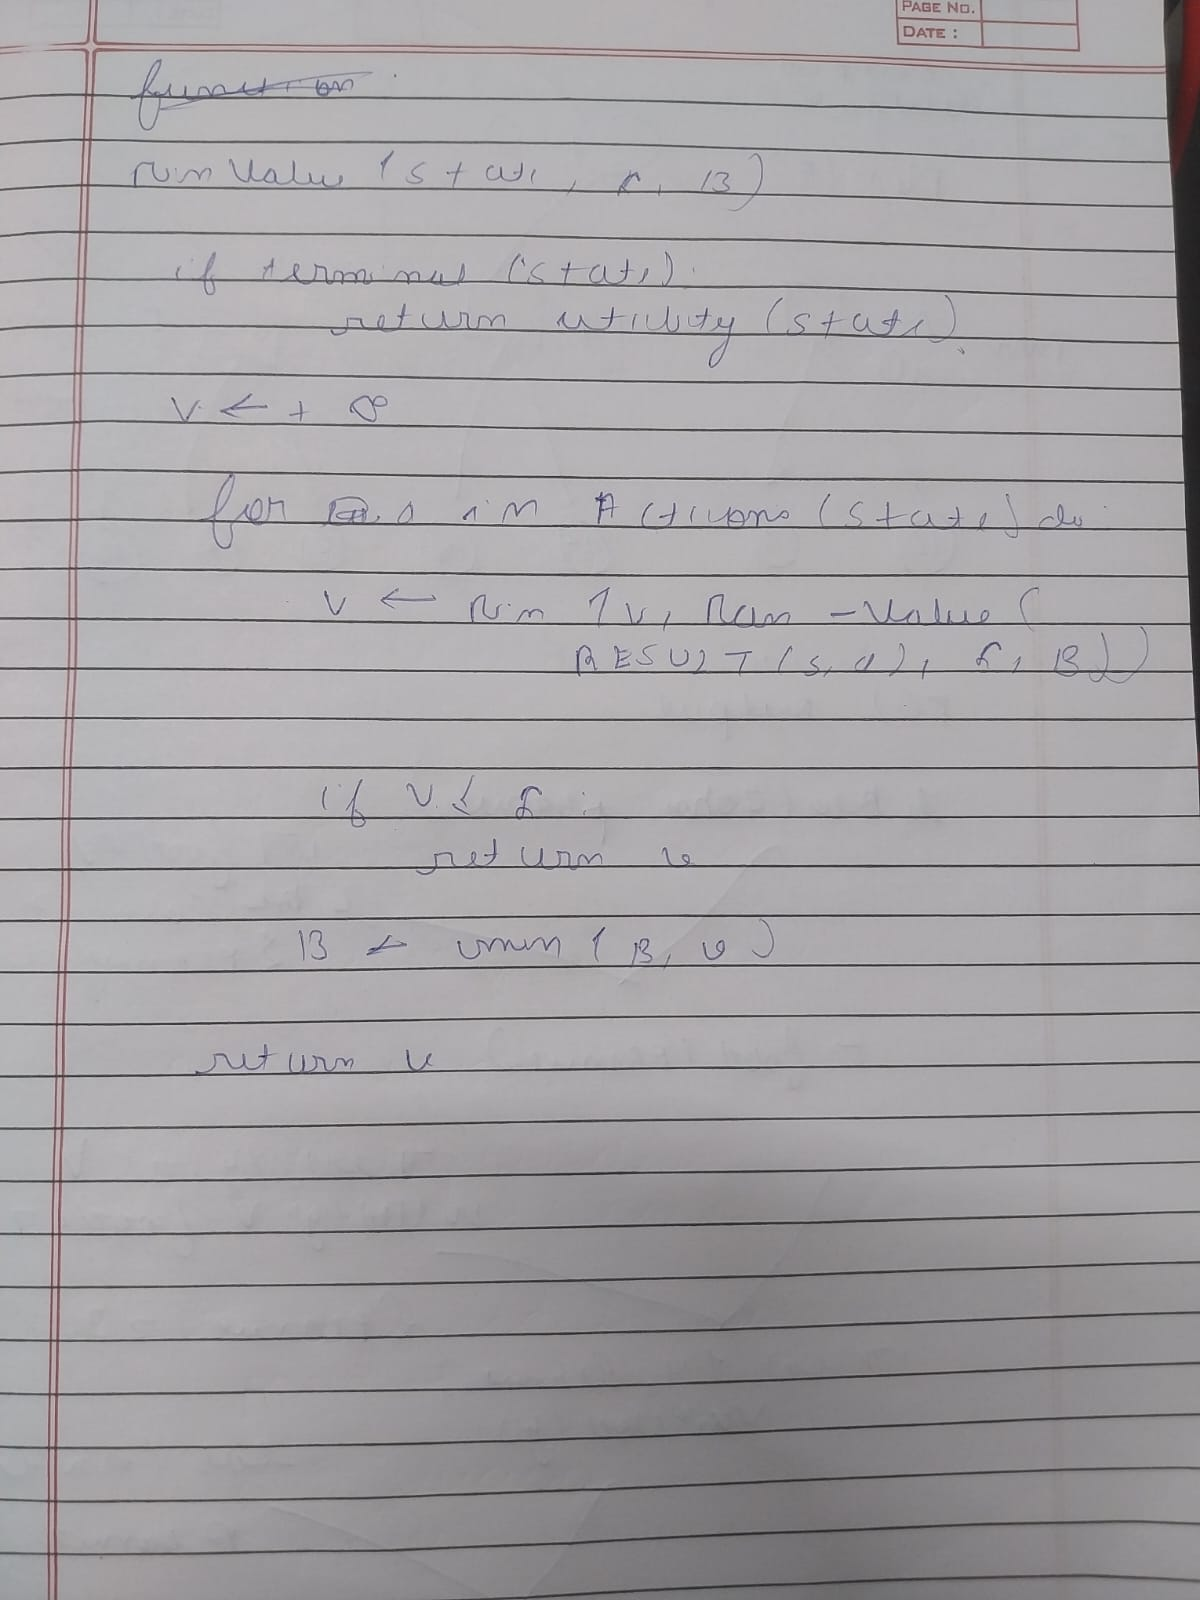 PAGE NO.
DATE :
function
min Value (state, α, B)
if terminal (state).
return utility (state)
V ← + ∞
for a in Actions (state) do
V ← Min (v, Max - Value (
RESULT (s, a), α, B))
if V ≤ α :
return v
B ← min (B, v)
return v